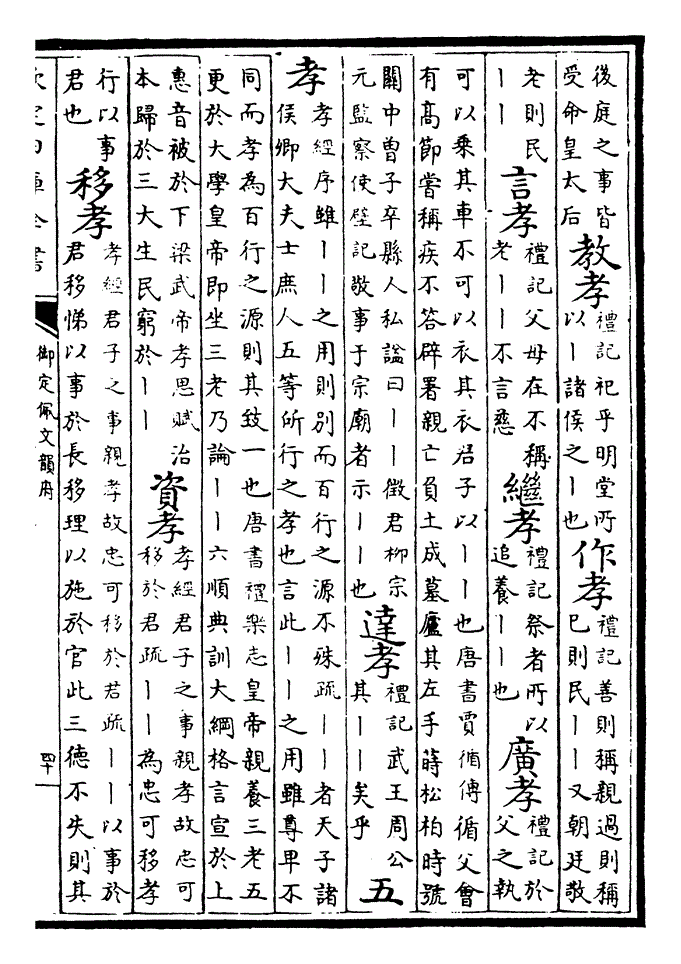 後庭之事皆
受命皇太后
教孝
禮記祀乎明堂所
以丨諸侯之丨也
作孝
禮記善則稱親過則稱
已則民丨丨又朝廷敬
老則民
丨丨
言孝
禮記父母在不稱
老丨丨不言慈
繼孝
禮記祭者所以
追養丨丨也
廣孝
禮記於
父之執
可以乘其車不可以衣其衣君子以丨丨也唐書賈循傳循父會
有高節嘗稱疾不答辟署親亡負土成墓廬其左手蒔松柏時號
關中曾子卒縣人私諡曰丨丨徵君柳宗
元監察使壁記敬事于宗廟者示丨丨也
達孝
禮記武王周公
其丨丨矣乎
五
孝
孝經序雖丨丨之用則別而百行之源不殊疏丨丨者天子諸
侯卿大夫士庶人五等所行之孝也言此丨丨之用雖尊卑不
同而孝為百行之源則其致一也唐書禮樂志皇帝親養三老五
更於大學皇帝即坐三老乃論丨丨六順典訓大綱格言宣於上
惠音被於下梁武帝孝思賦治
本歸於三大生民窮於丨丨
資孝
孝經君子之事親孝故忠可
移於君疏丨丨為忠可移孝
行以事
君也
移孝
孝經君子之事親孝故忠可移於君疏丨丨以事於
君移悌以事於長移理以施於官此三德不失則其
欽定四庫全書
御定佩文韻府
四十